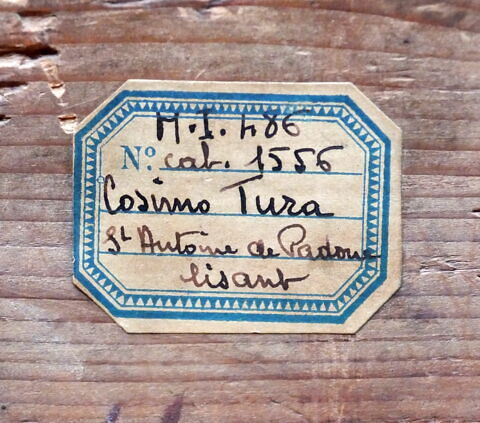 M.I. 486
N° cat. 1556
Cosimo Tura
St Antoine de Padoue
lisant